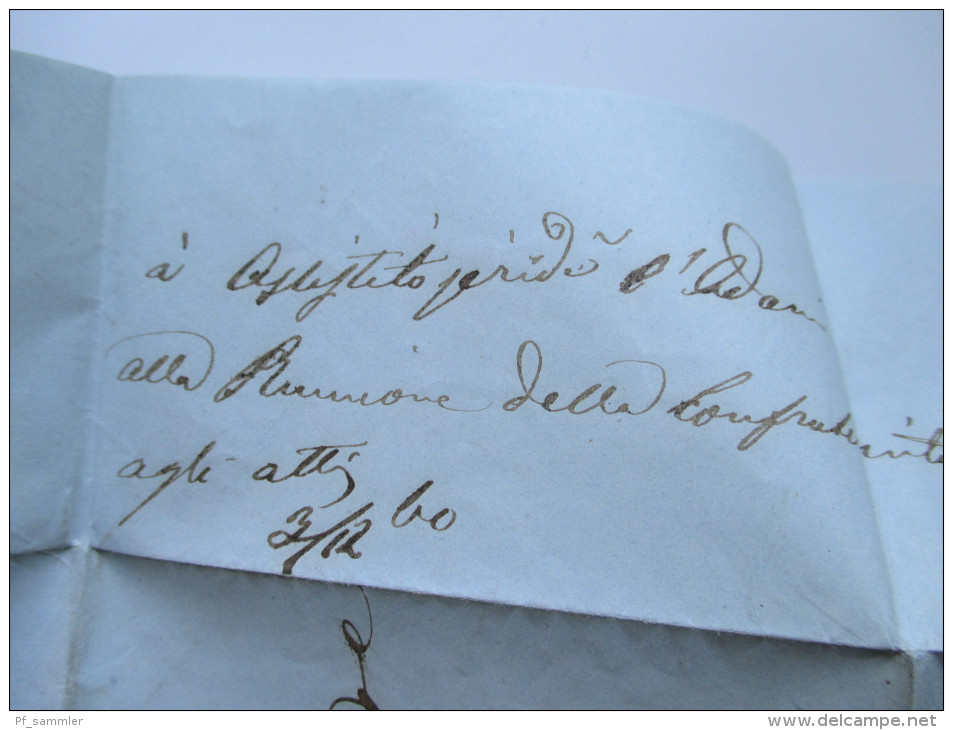 à Assistito
alla Riunione della Confraternita
agli atti
3/12 60
Pf_sammler
www.delcampe.net